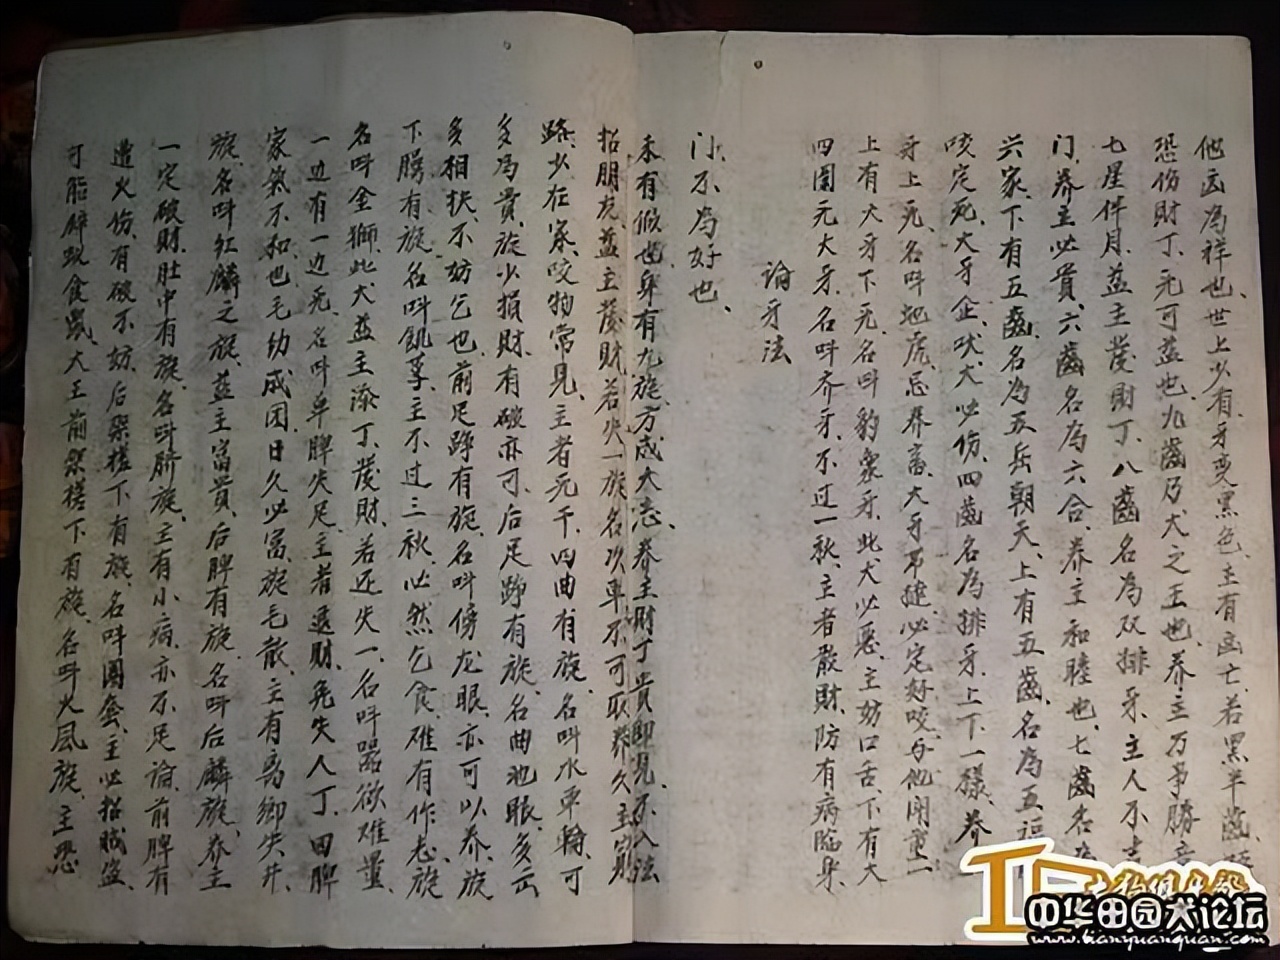 他凶為祥也、世上少有、牙变黑色、主有凶亡、若黑半齒、
恐伤財丁、无可益也、九齒乃犬之王也、养主万事勝意
七星伴月、益主發財丁、八齒名為双排牙、主人不吉
门、养主必貴、六齒名為六合、养主和睦也、七齒名為
兴家、下有五齒、名為五岳朝天、上有五齒、名為五福
咬定死、大牙企、吠犬必伤、四齒名為排牙、上下一樣、养
牙上无、名叫地虎、忌养畜、犬牙吊遂必定好咬、与他闲
上有大牙下无、名叫豹象牙、此犬必惡、主妨口舌、下有大
四圍无大牙、名叫齐牙、不过一秋、主者散財、防有病臨身、
論牙法
门、不為好也、
未有候也、身有九旋、方成大忌、养主財丁貴即見、不入法
招朋友、益主發財、若失一旋、名欢車、不可取、养久主
路、少在家、咬物常見、主者无干、四曲有旋、名叫水車輪、可
多為貴、旋少損財、有破亦可、后足踭有旋、名曲池眼、多云
多相扶、不妨乞也、前足踭有旋、名叫傍龙眼、亦可以养、旋
下膓有旋、名叫飢莩、主不过三秋、必然乞食、碓有作志、旋
名叫金獅、此犬益主添丁發財、若近失一、名叫器欲难量、
一边有一边无、名叫单脾失足、主者退財、免失人丁、四脾
家氣不和也、毛幼成团、日久必富、旋毛散、主有离鄉失井、
旋、名叫红麟之旋、益主富貴、后脾有旋、名叫后麟旋、养主
一定破財、肚中有旋、名叫脐旋、主有小病、亦不足論、前脾有
遭火伤、有破不妨、后架槎下有旋、名叫圈套、主必招贼盗、
可脂辟趴食鳳、犬王前架槎下有旋、名叫火風旋、主恐
中华田园犬论坛
www.tianyuanquan.com